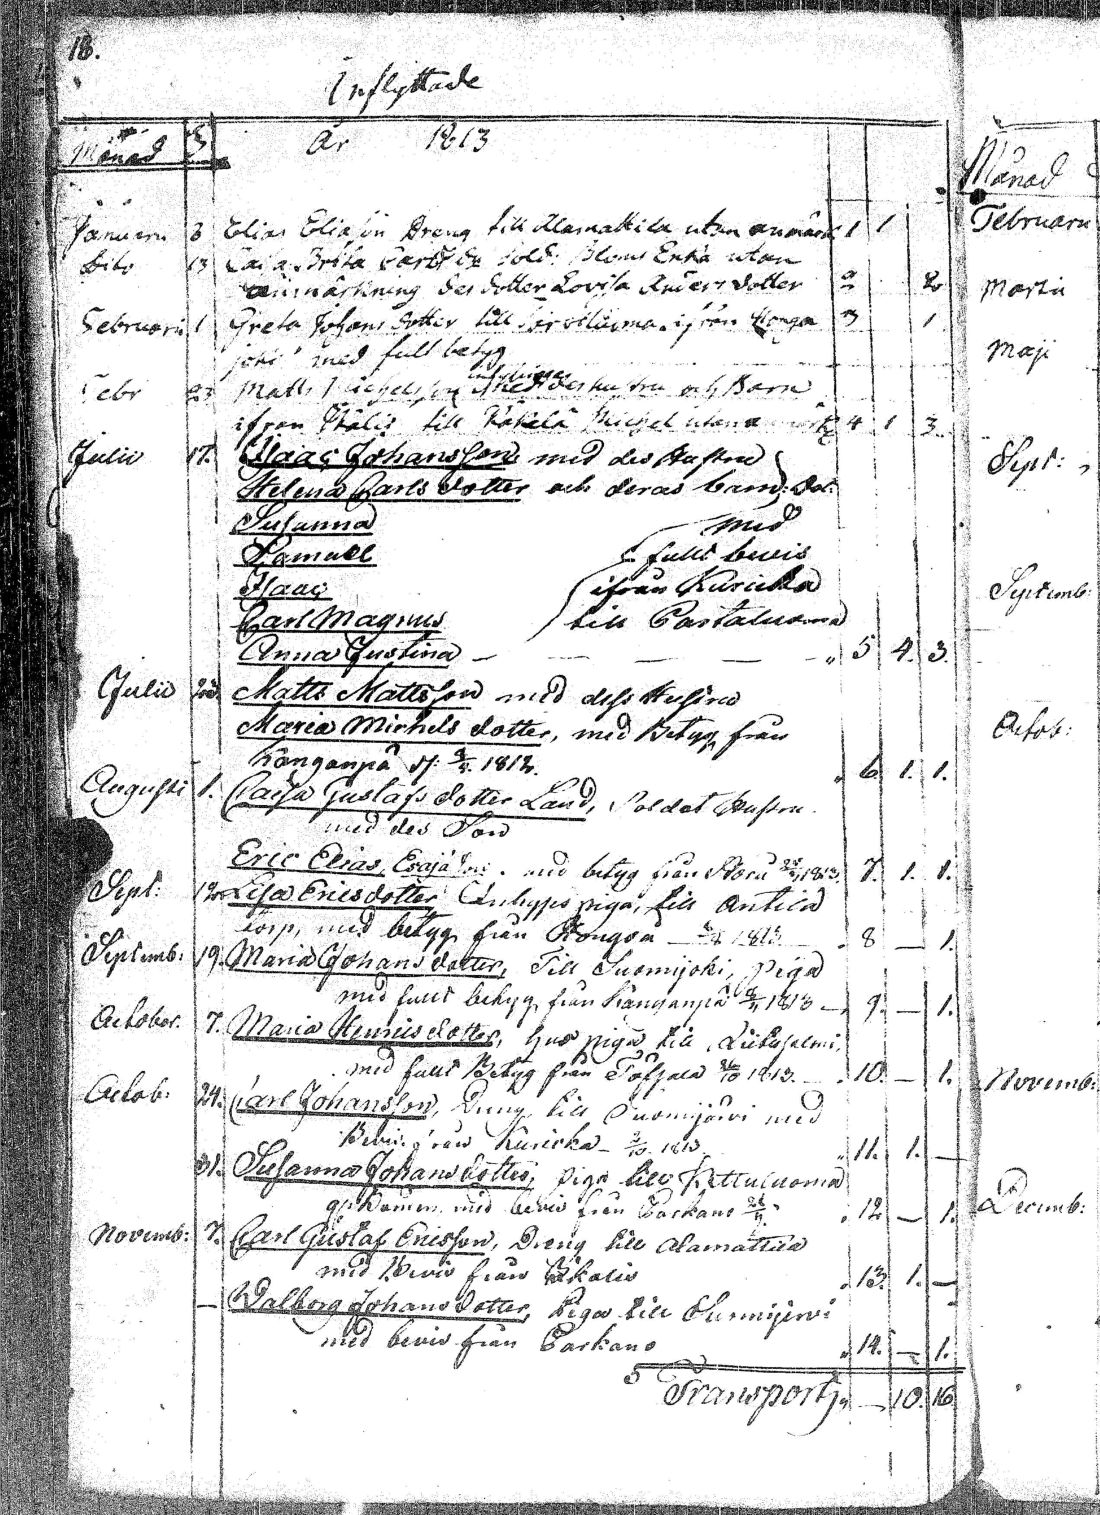 18.
Inflyttade
Månad År 1813
Januari 3 Elias Eliasson Dreng till Alamattila utan anmärk 1 1
Dito 13 Caisa Brita Carlsd Sold: Bloms Enka utan
anmärkning des dotter Lovisa Anders dotter 2 2
Februarii 1 Greta Johans dotter till ifrån Honga 3 1
joki med full betyg
Febr 23 Matts Michelsson med des hustru och Barn
ifrån till Michel utan 4 1 3
Julii 17. Isaac Johansson med des Hustru
Helena Carls dotter och deras barn: Dot:
Susanna med
Samuel fullt bevis
Isaac ifrån Kuricka
Carl Magnus till Partaluoma
Anna Justina — — — — " 5 4. 3.
Julii Matts Mattsson med dess Hustru
Maria Michels dotter, med Betyg från
Kanganpä 1812. " 6 1. 1.
Augusti 1. Caisa Gustafs dotter Land, Soldat Hustru
med des Son
Eric Elias, Esajas med betyg från 1813. 7. 1. 1.
Sept: 12 Lisa Ericsdotter piga, till Antila
torp, med betyg från Hongoia 1813 " 8 — 1.
Septemb: 19. Maria Johans dotter, Till Suomijoki, Piga
med fullt betyg från Kanganpä 1813 — 9. — 1.
October. 7. Maria Henricsdotter, piga till
med fullt Betyg från 1813. — 10. — 1.
Octob: 24. Carl Johansson, Dreng till Suomijärvi med
Bevis från Kuricka — 1813 " 11. 1. —
31. Susanna Johans dotter, piga till Kettuluoma
med bevis från Parkano " 12 — 1.
Novemb: 7. Carl Gustaf Ericsson, Dreng till Alamattila
med Bevis från Ikalis " 13. 1. —
— Walborg Johans dotter, Piga till
med bevis från Parkano " 14. — 1.
Transport, — 10. 16
Månad
Februarii
Martii
Maji
Sept:
Septemb:
Octob:
Novemb:
Decemb: